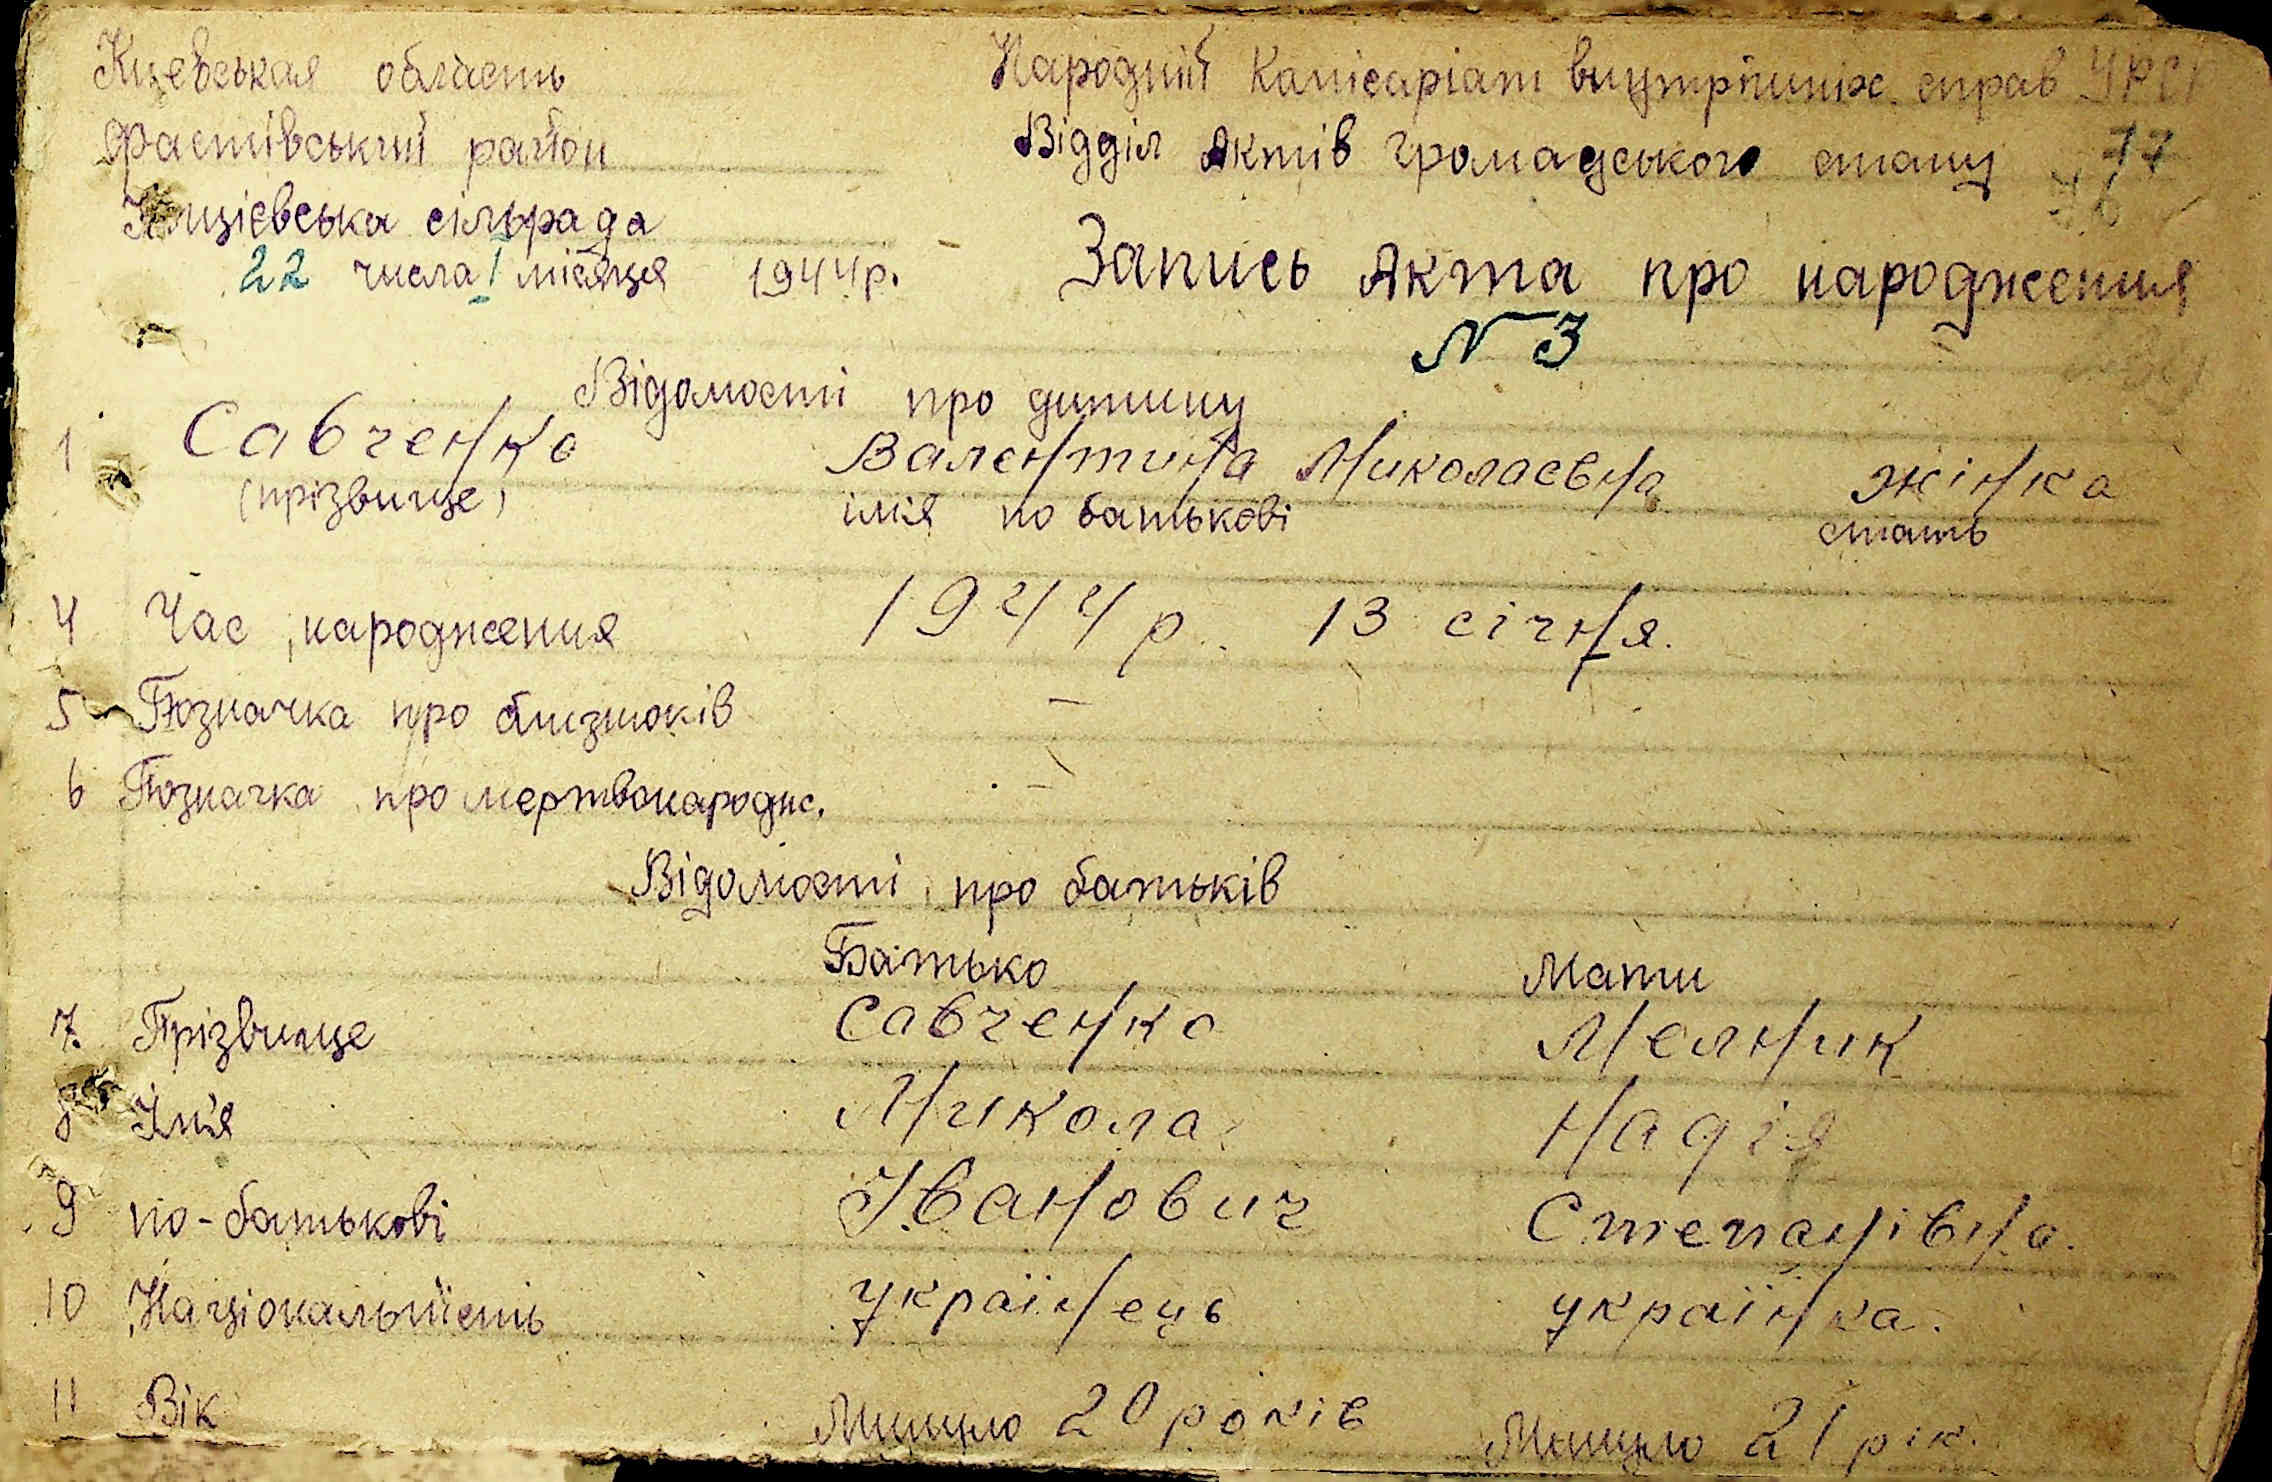 Києвськая область
Народній Комісаріат внутрішніх справ УРСР
Фастівський район
Відділ Актів громадського стану
77
76
сільрада
22 числа 1 місяця 1944 р.
Запись Акта про народження
N 3
Відомості про дитину
1 Савченко Валентина Миколаєвна жінка
(прізвище) імя по батькові стать
4 Час народження 1944 р. 13 січня.
5 Позначка про близнюків —
6 Позначка про мертвонародж. —
Відомості про батьків
Батько Мати
7. Прізвище Савченко Мелник
8 Імя Микола Надія
9 по-батькові Іванович Степанівна.
10 Національність українець українка.
11 Вік Минуло 20 років Минуло 21 рік.